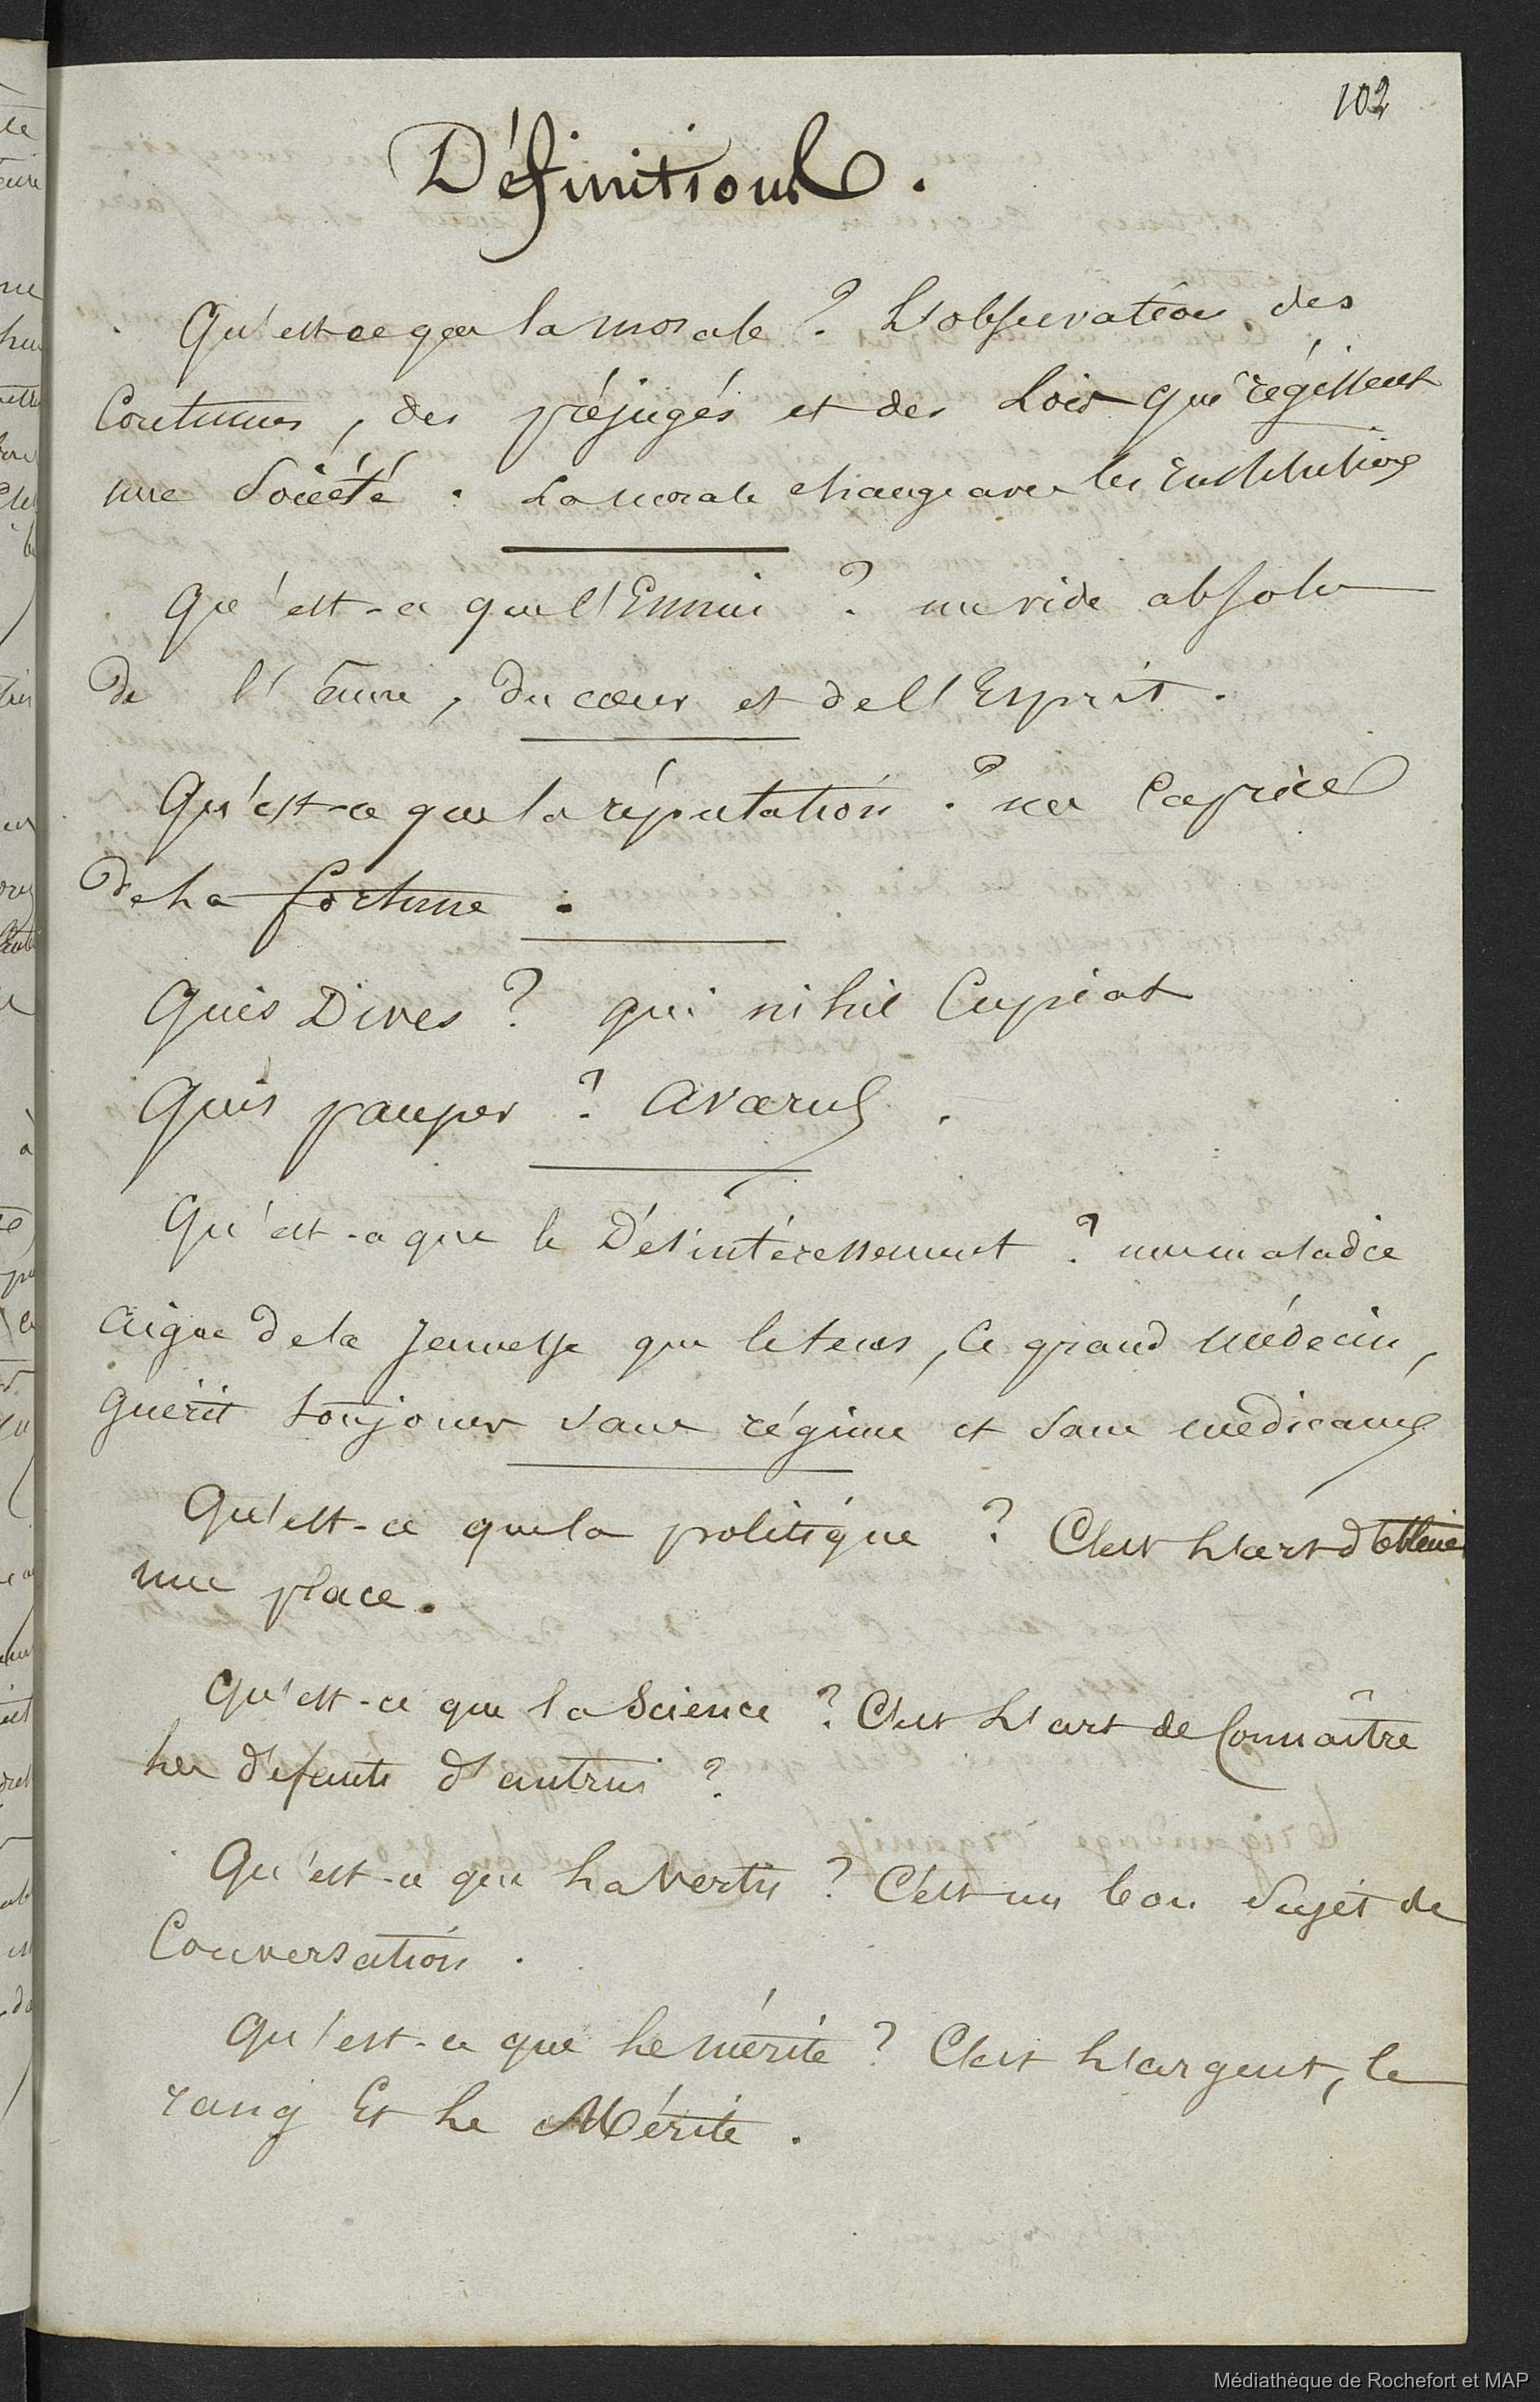 102
Définitions.
Qu'est-ce que la morale ? L'observation des
Coutumes, des préjugés et des Lois qui régissent
une Société. La morale change avec les Institutions
Qu'est-ce que l'Ennui ? un vide absolu
de l'âme, du cœur et de l'Esprit.
Qu'est-ce que la réputation ? un Caprice
de la fortune.
Quis Dives ? qui nihil Cupiat
Quis pauper ? avarus.
Qu'est-ce que le Désintéressement ? une maladie
aigue de la Jeunesse que le tems, ce grand médecin,
guérit toujours sans régime et sans médicams
Qu'est-ce que la politique ? C'est L'art d'obtenir
une place.
Qu'est-ce que la Science ? C'est L'art de Connaître
les défauts d'autrui ?
Qu'est-ce que La Vertu ? C'est un bon Sujet de
Conversation.
Qu'est-ce que Le mérite ? C'est L'argent, le
rang Et Le Mérite.
Médiathèque de Rochefort et MAP